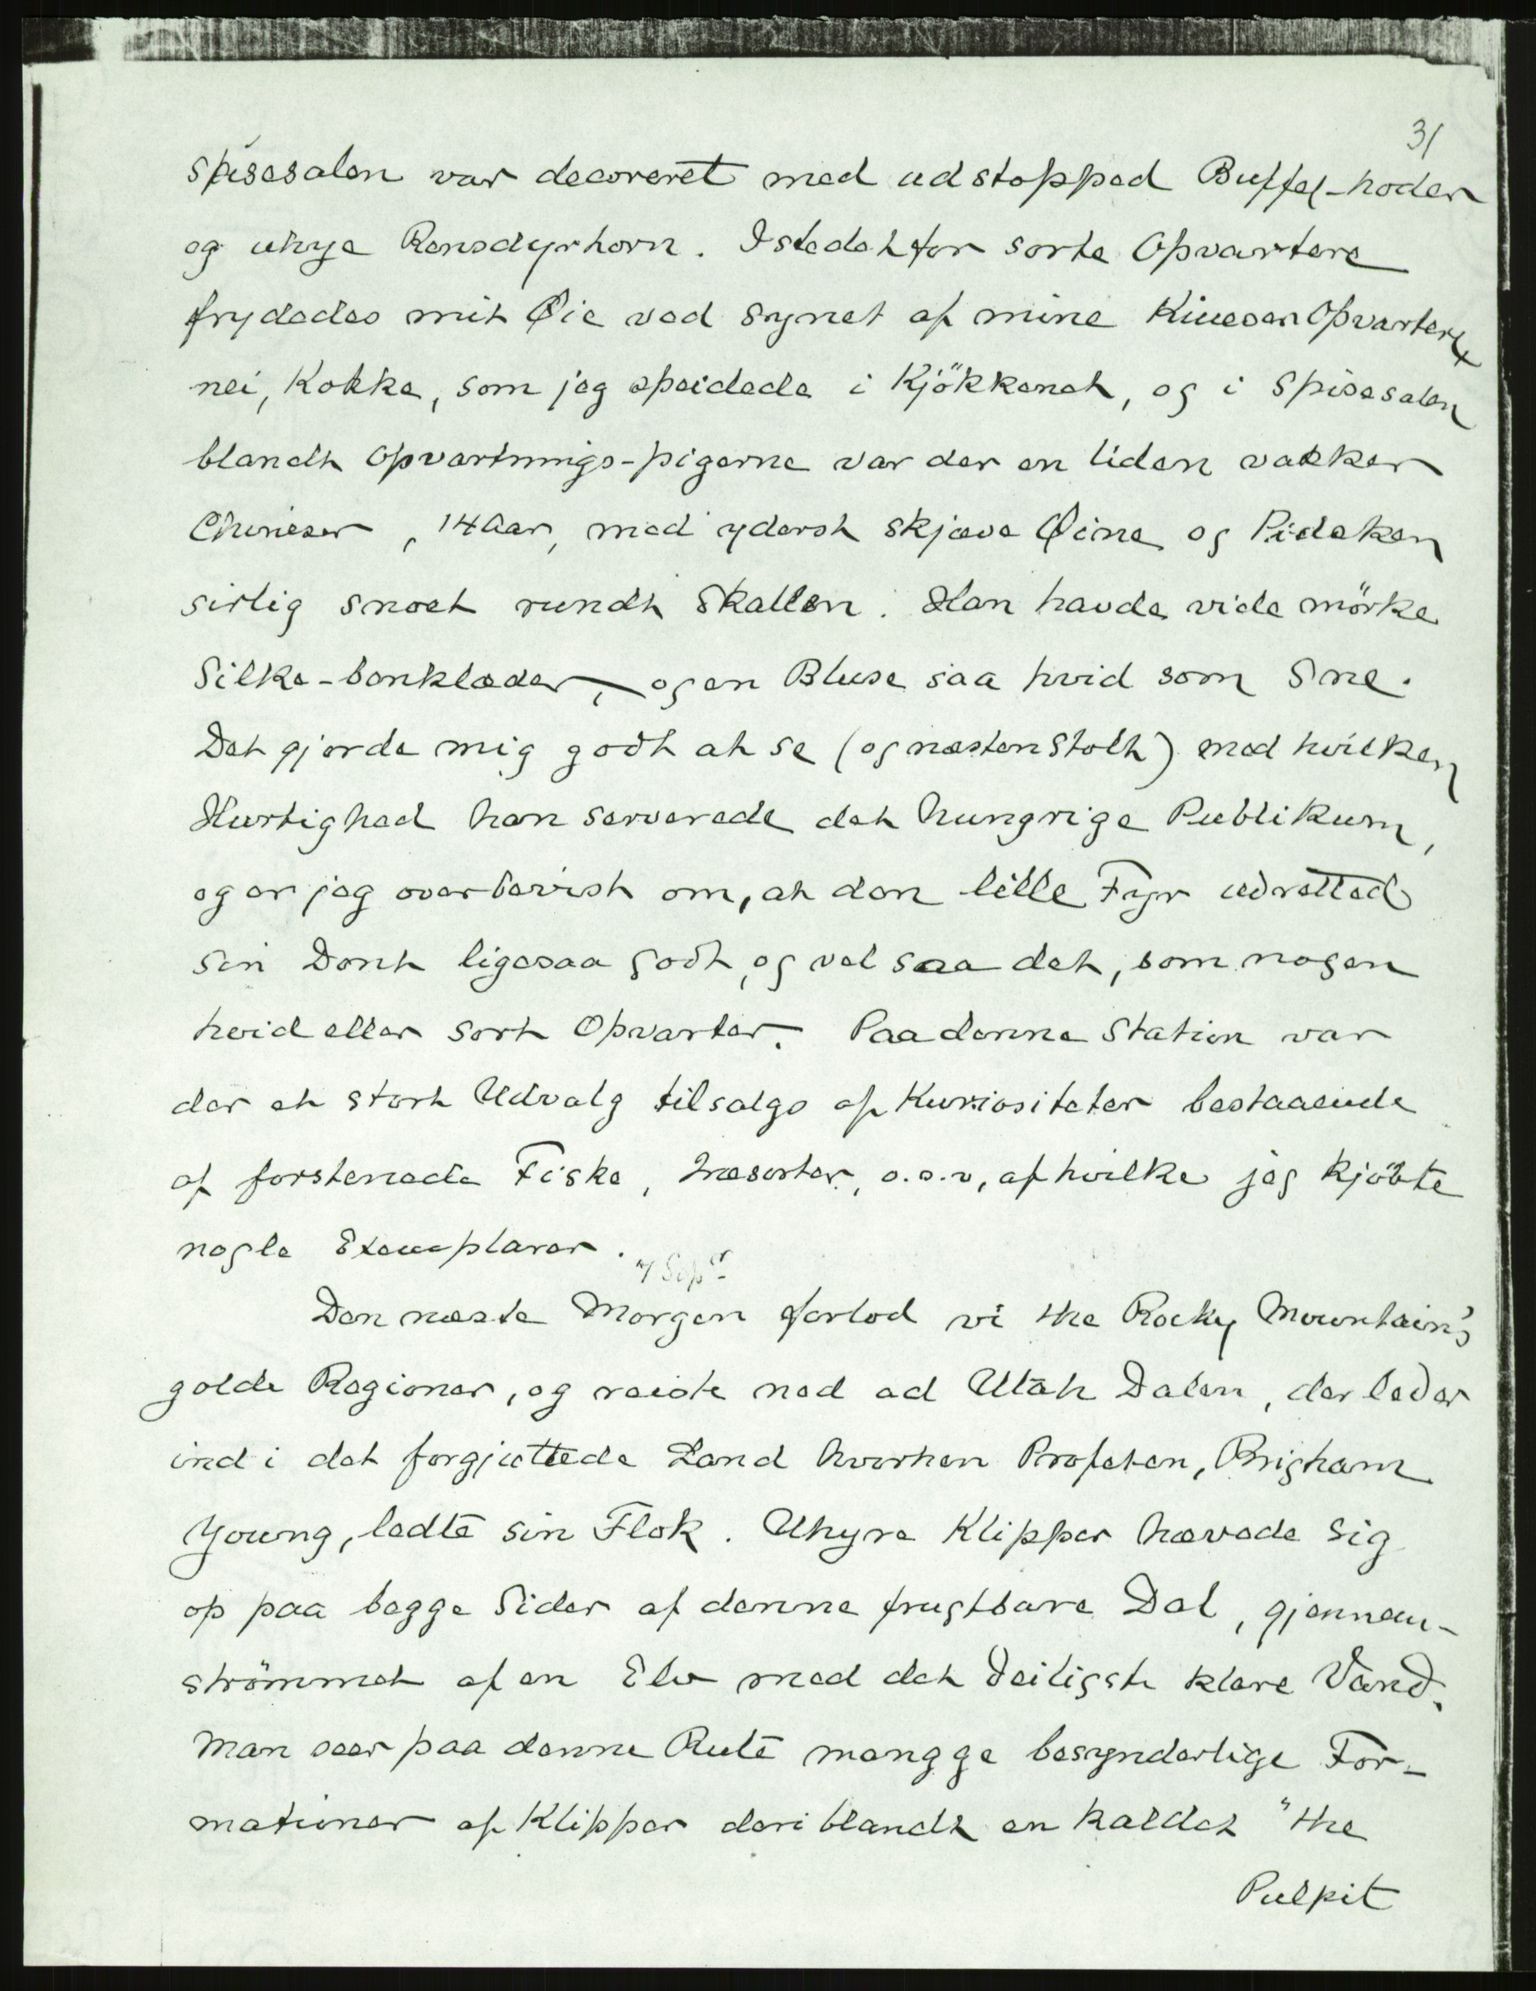 31
Spisesalen var decoreret med udstopped Buffel-hoder
og uhye Rensdyrhorn. Istedetfor sorte Opvartere
frydedes mit Øie ved Synet af mine Kineser Opvartere
nei, Kokke, som jeg speidede i Kjökkenet, og i Spisesalen
blandt Opvartnings-pigerne var der en liden vakker
Chineser, 14 Aar, med yderst skjæve Øine og Pidsken
sirlig snoet rundt Skallen. Han havde vide mörke
Silke-benklæder, og en Bluse saa hvid som Sne.
Det gjorde mig godt at se (og næsten stolt) med hvilken
Hurtighed han serverede det hungrige Publikum,
og er jeg overbevist om, at den lille Fyr udretted
sin Dont ligesaa godt, og vel saa det, som nogen
hvid eller sort Opvarter. Paa denne Station var
der et stort Udvalg tilsalgs af Kuriositeter bestaaende
af forstenede Fiske, Træsorter, o.s.v, af hvilke jeg kjöbte
nogle Exemplarer.
7 Sepr
Den næste Morgen forlod vi the Rocky Mountain's
golde Regioner, og reiste ned ad Utah Dalen, der leder
ind i det forgjættede Land hvorhen Profeten, Brigham
Young, ledte sin Flok. Uhyre Klipper hævede sig
op paa begge Sider af denne frugtbare Dal, gjennem-
strömmet af en Elv med det deiligste klare Vand.
Man seer paa denne Rute mangge besynderlige For-
mationer af Klipper deriblandt en kaldet "the
Pulpit